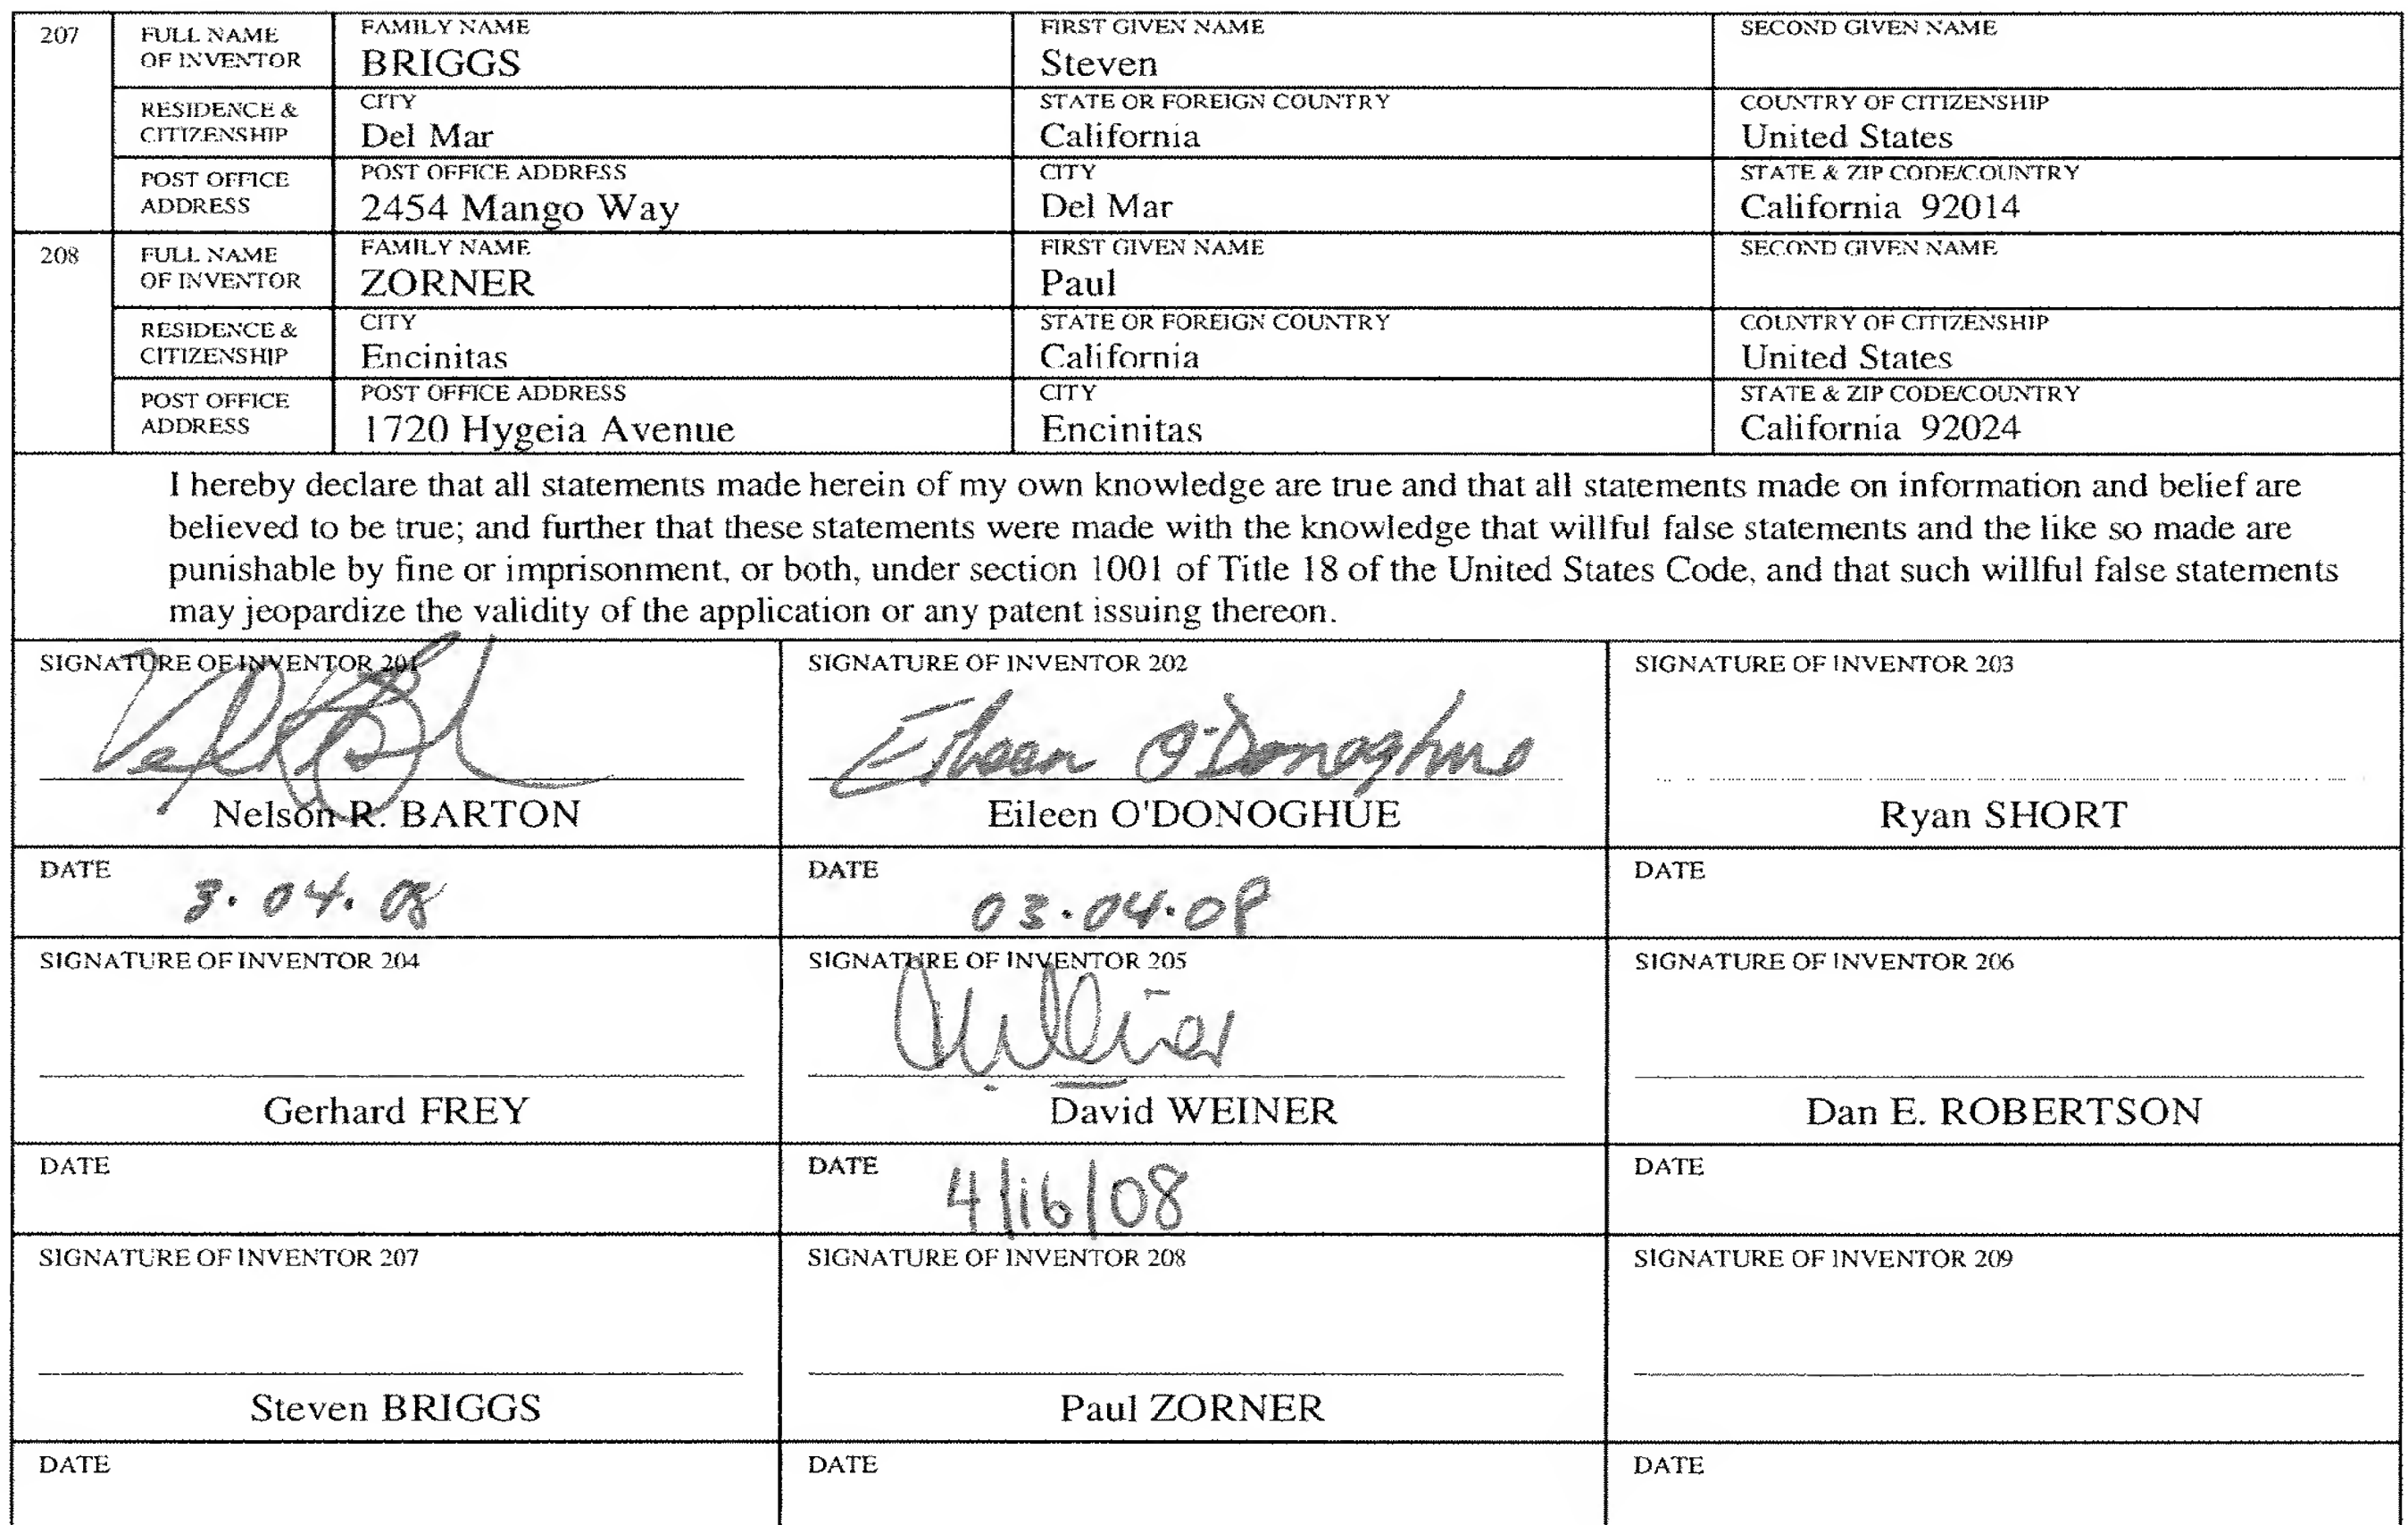 207 FULL NAME OF INVENTOR FAMILY NAME BRIGGS FIRST GIVEN NAME Steven SECOND GIVEN NAME
RESIDENCE & CITIZENSHIP CITY Del Mar STATE OR FOREIGN COUNTRY California COUNTRY OF CITIZENSHIP United States
POST OFFICE ADDRESS POST OFFICE ADDRESS 2454 Mango Way CITY Del Mar STATE & ZIP CODE/COUNTRY California 92014
208 FULL NAME OF INVENTOR FAMILY NAME ZORNER FIRST GIVEN NAME Paul SECOND GIVEN NAME
RESIDENCE & CITIZENSHIP CITY Encinitas STATE OR FOREIGN COUNTRY California COUNTRY OF CITIZENSHIP United States
POST OFFICE ADDRESS POST OFFICE ADDRESS 1720 Hygeia Avenue CITY Encinitas STATE & ZIP CODE/COUNTRY California 92024
I hereby declare that all statements made herein of my own knowledge are true and that all statements made on information and belief are
believed to be true; and further that these statements were made with the knowledge that willful false statements and the like so made are
punishable by fine or imprisonment, or both, under section 1001 of Title 18 of the United States Code, and that such willful false statements
may jeopardize the validity of the application or any patent issuing thereon.
SIGNATURE OF INVENTOR 201 SIGNATURE OF INVENTOR 202 SIGNATURE OF INVENTOR 203
Eileen O'Donoghue
Nelson R. BARTON Eileen O'DONOGHUE Ryan SHORT
DATE 3.04.08 DATE 03.04.08 DATE
SIGNATURE OF INVENTOR 204 SIGNATURE OF INVENTOR 205 SIGNATURE OF INVENTOR 206
Gerhard FREY David WEINER Dan E. ROBERTSON
DATE DATE 4/16/08 DATE
SIGNATURE OF INVENTOR 207 SIGNATURE OF INVENTOR 208 SIGNATURE OF INVENTOR 209
Steven BRIGGS Paul ZORNER
DATE DATE DATE